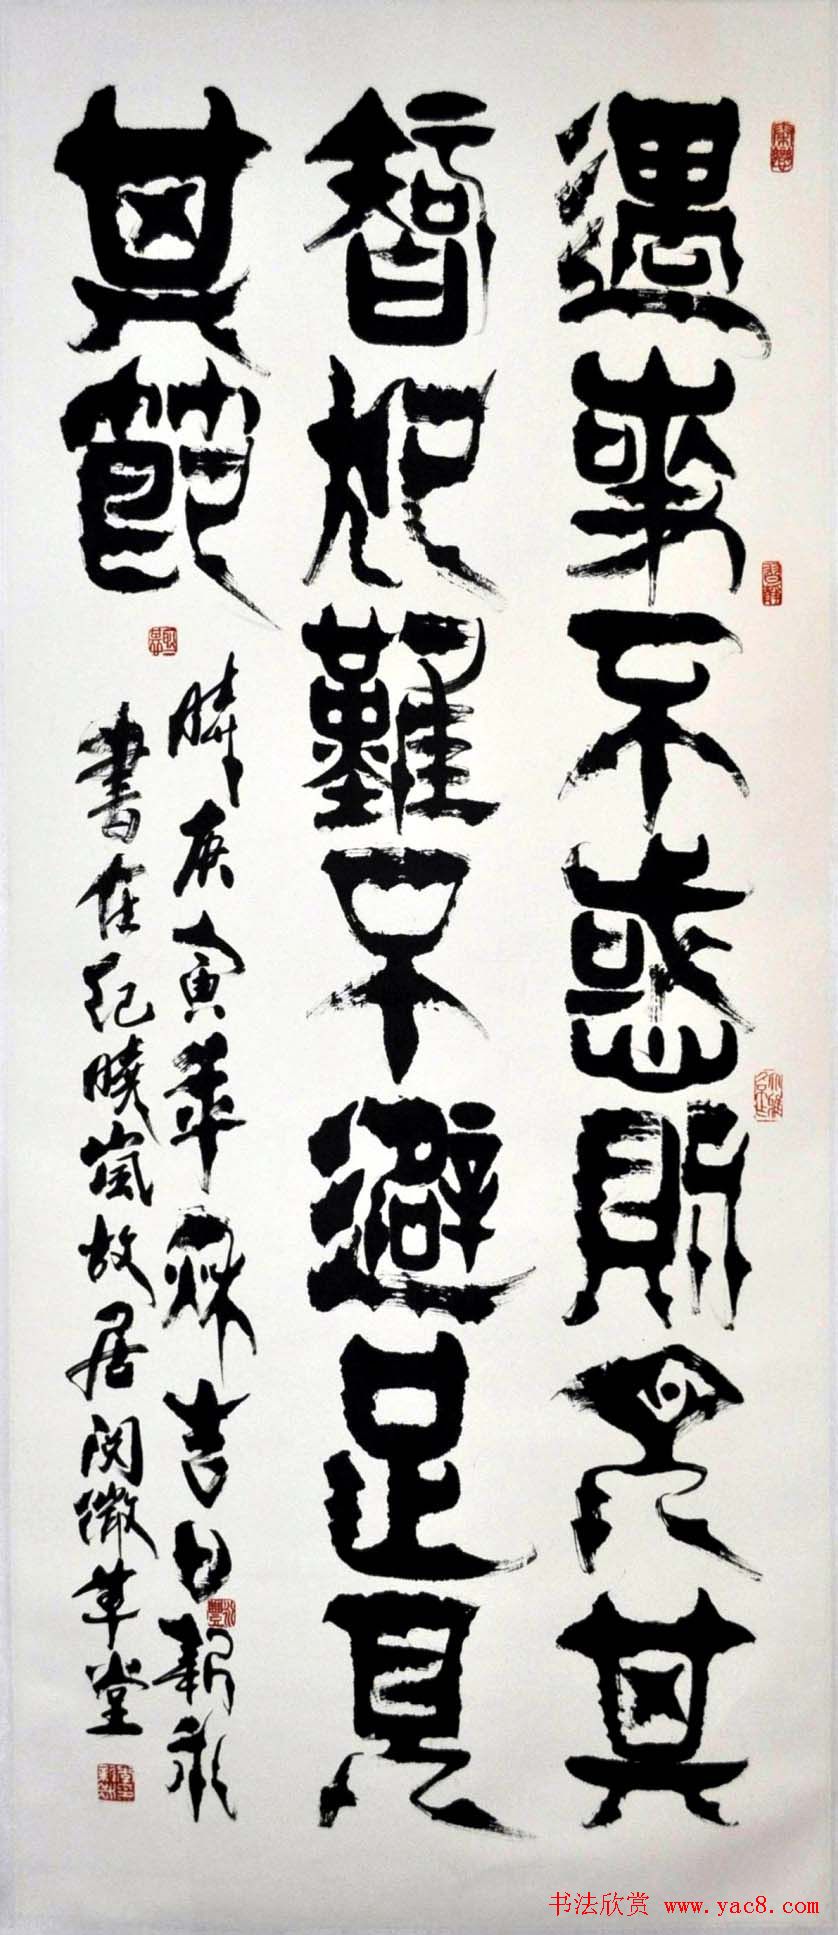 遇事不惑則見其
智犯難不避足見
其節
時庚寅年秋吉日靳永
書在紀曉嵐故居閱微草堂
书法欣赏 www.yac8.com